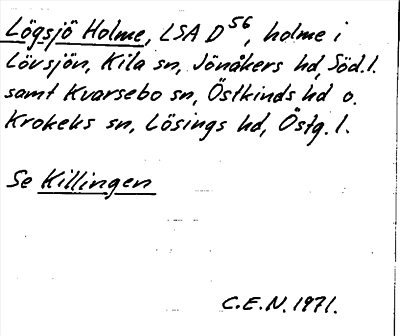 Lögsjö Holme, LSA D⁵⁶, holme i
Lövsjön, Kila sn, Jönåkers hd, Söd.l.
samt Kvarsebo sn, Östkinds hd o.
Krokeks sn, Lösings hd, Östg.l.
Se Killingen
C.E.N. 1971.